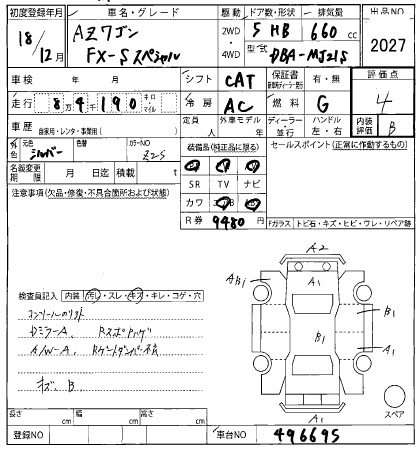 初度登録年月 車名・グレード 駆動 ドア数・形状 排気量 出品NO
18/12月 AZワゴン 2WD 5 HB 660 cc 2027
FX-Sスペシャル 4WD 型式 DBA-MJ21S
車検 年 月 シフト CAT 保証書 有・無 評価点
走行 8万4190 キロ・マイル 冷房 AC 燃料 G 4
車歴 自家用・レンタ・事業用( ) 定員 人 外車モデル 年 ディーラー 並行 ハンドル 左・右 内装評価 B
外色 元色 シルバー 色替 カラーNO Z2S 装備品(純正品に限る) セールスポイント(正常に作動するもの)
名義変更期限 月 日迄 積載 t
SR TV ナビ
注意事項(欠品・修復・不具合箇所および状態)
カワ
R券 9480 円
Fガラス トビ石・キズ・ヒビ・ワレ・リペア跡
A2
AB1 A1
検査員記入 内装 汚レ・スレ・キズ・キレ・コゲ・穴
B1
B1
A/W-A
A1
キズ B
A1
スペア
長さ cm 幅 cm 高さ cm
登録NO 車台NO 496695